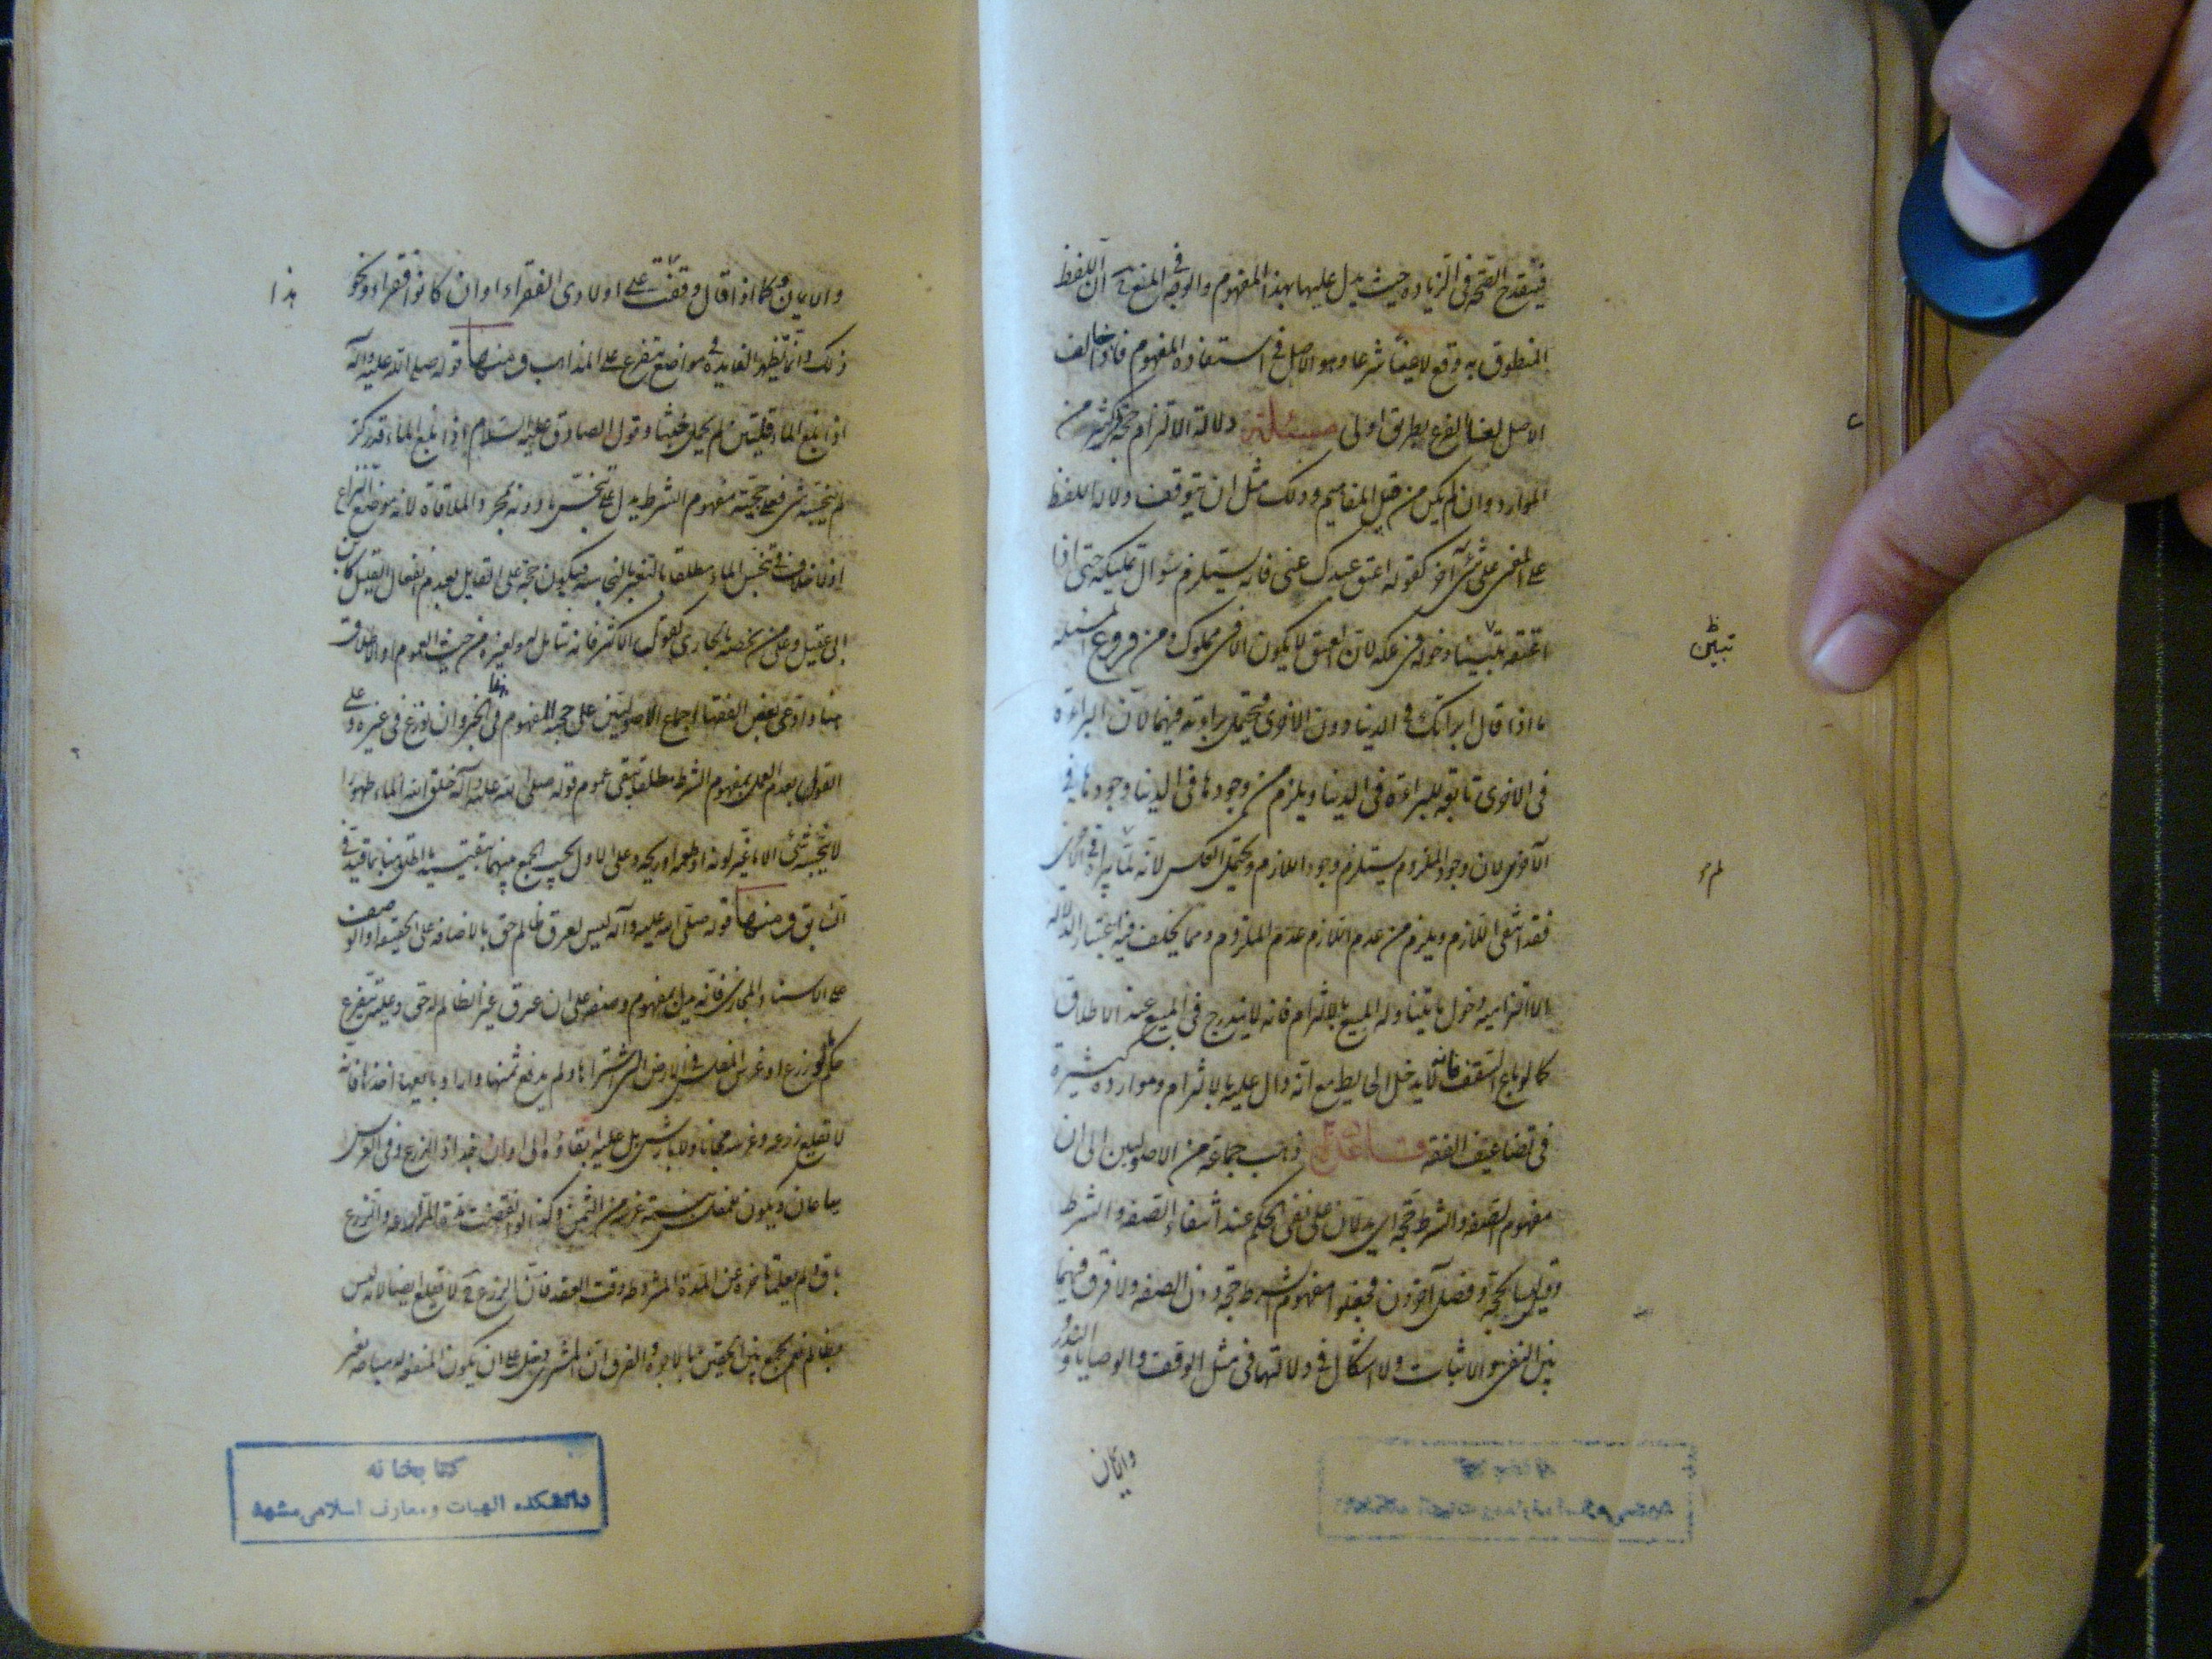 فينقدح الصحة في الزيادة حيث يدل عليها بهذا المفهوم والوجه في المنع ان اللفظ
المنطوق به وقع لاغيا شرعا وهو الاصل في استفادة المفهوم فاذا خالف
الاصل لغا الفرع بطريق اولى مسئلة دلالة الالتزام حجة في كثير من
الموارد وان لم يكن من قبل المفاهيم وذلك مثل ان يتوقف دلالة اللفظ
على المعنى على شئ آخر كقوله اعتق عبدك عني فانه يستلزم سؤال تمليكه حتى اذا
اعتقه تبينا دخوله في ملكه لان العتق لا يكون الا في مملوك ومن فروع المسئلة
ما اذا قال ابراتك في الدنيا دون الاخرى فيحتمل براءته فيهما لان البراءة
في الاخرى تابعة للبراءة في الدنيا ويلزم من وجودها في الدنيا وجودها في
الاخرى لان وجود الملزوم يستلزم وجود اللازم ويحتمل العكس لانه لما لم يبراه في الاخرى
فقد انتفى اللازم ويلزم من عدم اللازم عدم الملزوم ومما يخلف فيه اعتبار الدلالة
الالتزامية دخول ما يتناوله المبيع بالالتزام فانه لا يندرج في المبيع عند الاطلاق
كما لو باع السقف فانه لا يدخل الحايط مع انه دال عليه بالالتزام وموارده كثيرة
في تضاعيف الفقه قاعدة ذهب جماعة من الاصوليين الى ان
مفهوم الصفة والشرط حجة اي يدلان على نفي الحكم عند انتفاء الصفة والشرط
وقيل ليسا بحجة وفصل آخرون فجعلوا مفهوم الشرط حجة دون الصفة ولا فرق فيهما
بين النفي والاثبات ولا اشكال في دلالتهما في مثل الوقف والوصايا والنذور
والايمان
تبين ظ
والايمان كما اذا قال وقفت على اولادي الفقراء او ان كانوا فقراء ونحو
هذا
ذلك وانما تظهر الفايدة في مواضع تتفرع على المذاهب ومنها قوله صلى الله عليه وآله
اذا بلغ الماء قلتين لم يحمل خبثا وقول الصادق عليه السلام اذا بلغ الماء قدر كر
لم ينجسه شئ فعلى حجية مفهوم الشرط يدل على تنجس ما دونه بمجرد الملاقاة لانه موضع النزاع
اذ لا خلاف في تنجس الماء مطلقا بالتغير بالنجاسة فيكون حجة على القايل بعدم انفعال القليل كابن
ابي عقيل وعلى من يخصه بالجاري كقول الاكثر فانه شامل له ولغيره من حيث العموم او الاطلاق
هنا وادعى بعض الفقها اجماع الاصوليين على حجية المفهوم في هذا الخبر وان نوزع في غيره وعلى
القول بعدم العمل بمفهوم الشرط مطلقا يبقى عموم قوله صلى الله عليه وآله خلق الله الماء طهورا
لا ينجسه شئ الا ما غير لونه او طعمه او ريحه وعلى الاول يجب الجمع بينهما بتقييد ما اطلق هنا بما قيد في
السابق ومنها قوله صلى الله عليه وآله ليس لعرق ظالم حق بالاضافة على الحقيقة او الوصف
على الاسناد المجازي فانه يدل بمفهوم وصفه على ان عرق غير الظالم له حق وعليه يتفرع
حكم ما لو زرع او غرس المفلس في الارض التي اشتراها ولم يدفع ثمنها واراد بايعها اخذها فانه
لا يقلع زرعه وغرسه مجانا ولا بارش بل عليه ابقاؤه الى اوان جذاذ الزرع وفي الغرس
يباعان ويكون للمفلس نسبة غرسه من الثمن وكذا لو انقضت مدة المزارعة والزرع
باق ولم يعلما تاخره عن المدة المشروطة وقت العقد فان الزرع لا يقلع ايضا لانه ليس
بظالم فيجمع بين الحقين بالاجرة والفرق ان المشتري دخل على ان يكون المنفعة له مباحة بغير
كتابخانه
دانشکده الهیات و معارف اسلامی مشهد